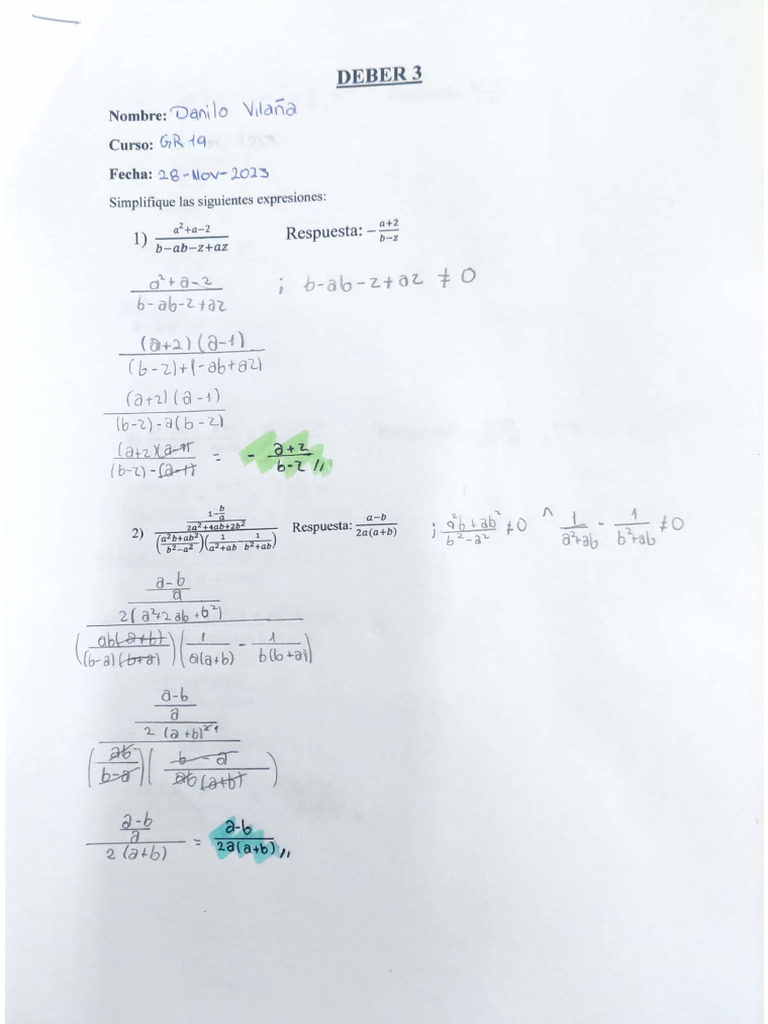 DEBER 3
Nombre: Danilo Vilaña
Curso: GR19
Fecha: 28-Nov-2023
Simplifique las siguientes expresiones:
1) \frac{a²+a−2}{b−ab−z+az} Respuesta: −\frac{a+2}{b−z}
\frac{a²+a-2}{b-ab-z+az} ; b-ab-z+az ≠ 0
\frac{(a+2)(a-1)}{(b-z)+(-ab+az)}
\frac{(a+2)(a-1)}{(b-z)-a(b-z)}
\frac{(a+2)(a-1)}{(b-z)-(a-1)} = -\frac{a+2}{b-z} //
2) \frac{\frac{1-\frac{b}{a}}{2a²+4ab+2b²}}{(\frac{a²b+ab²}{b²-a²})(\frac{1}{a²+ab} \frac{1}{b²+ab})} Respuesta: \frac{a−b}{2a(a+b)} ; \frac{a²b+ab²}{b²-a²} ≠0 ^ \frac{1}{a²+ab} - \frac{1}{b²+ab} ≠0
\frac{\frac{\frac{a-b}{a}}{2(a²+2ab+b²)}}{(\frac{ab(a+b)}{(b-a)(b+a)})(\frac{1}{a(a+b)} - \frac{1}{b(b+a)})}
\frac{\frac{\frac{a-b}{a}}{2(a+b)^{2 1}}}{(\frac{ab}{b-a})(\frac{b-a}{ab(a+b)})}
\frac{\frac{a-b}{a}}{2(a+b)} = \frac{a-b}{2a(a+b)} //